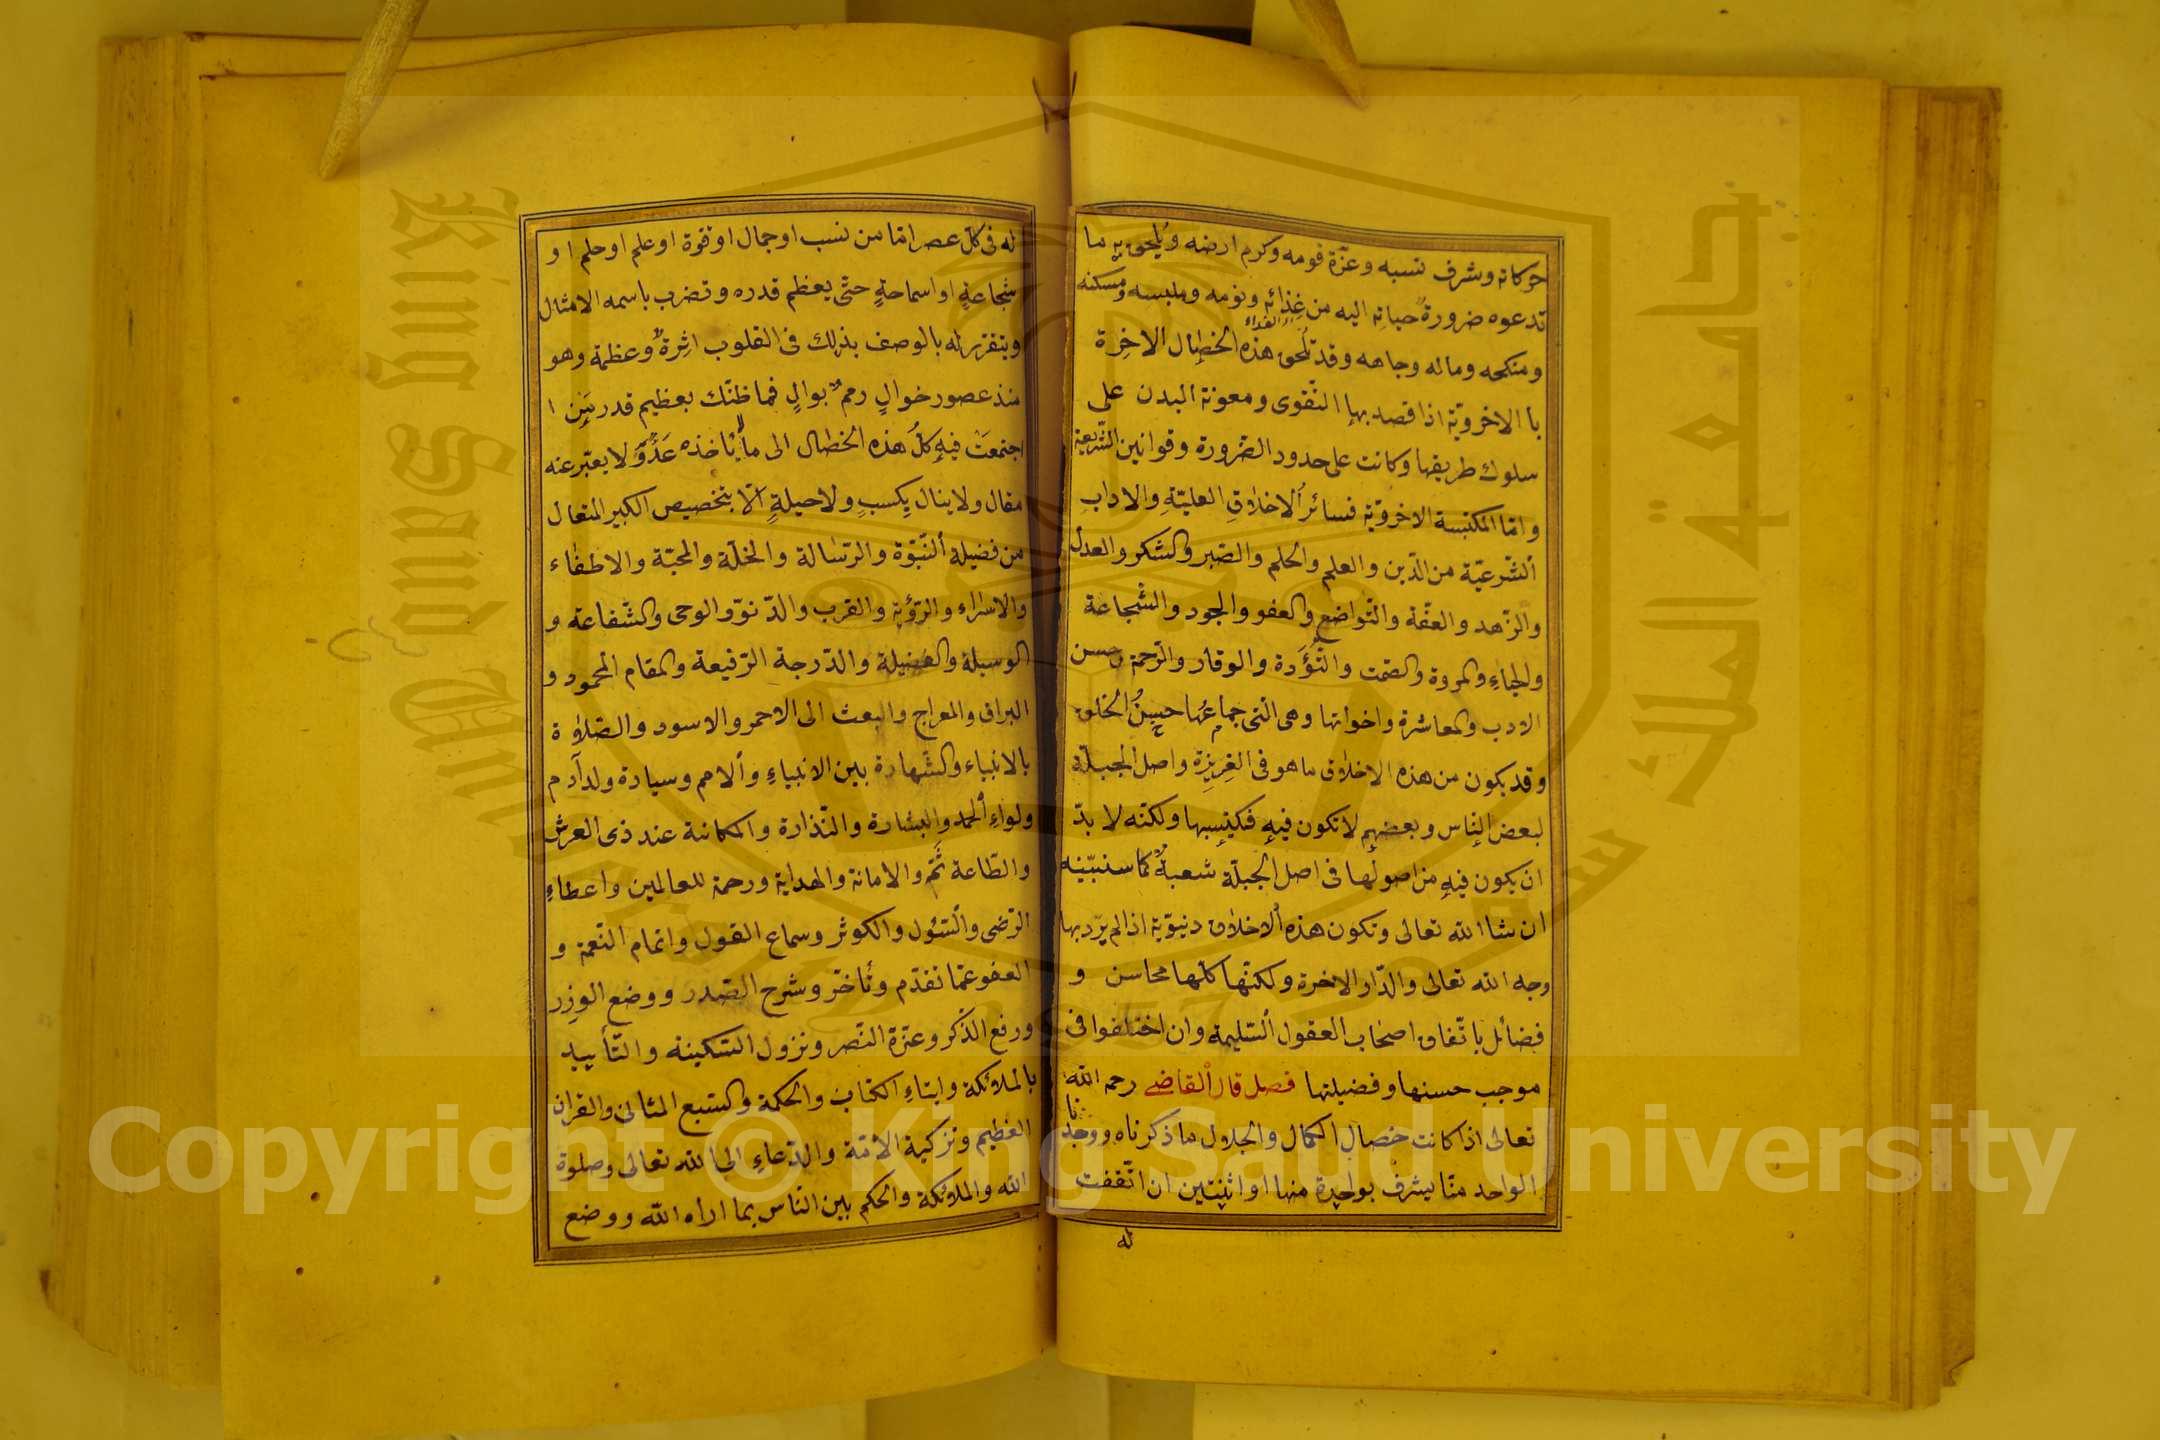 حركاته وشرف نسبه وعزّة قومه وكرم ارضه ويُلحق به ما
تدعوه ضرورةُ حياتِه اليه من غِذائِه ونومه وملبسه ومسكنه
الغداء
ومنكحه وماله وجاهه وقد تُلحق هذه الخصال الاخِرة
با الاخرويّة اذا قصد بها التّقوى ومعونة البدن على
سلوك طريقها وكانت على حدود الضّرورة وقوانين الشّريعة
وامّا المكتسبة الاخرويّة فسائر الاخلاقِ العليّةِ والادابِ
الشّرعيّة من الدّين والعلم والحلم والصّبر والشّكر والعدل
والزّهد والعفّة والتّواضع والعفو والجود والشّجاعة
والحياءِ والمروة والصّمت والتُّؤَدة والوقار والرّحمة وحسن
الادب والمعاشرة واخواتها وهى الّتى جماعُها حسنُ الخلق
وقد يكون من هذه الاخلاق ماهو فى الغرِيزة واصل الجبلّة
لبعض النّاس وبعضهم لاتكون فيه فيكتسبها ولكنّه لا بدّ
ان يكون فيه من اصولها فى اصل الجبلّة شعبةٌ كما سنبيّنه
ان شاالله تعالى وتكون هذه الاخلاق دنيويّة اذالم يرد بها
وجه الله تعالى والدّار الاخرة ولكنّها كلّها محاسن و
فضائل باتّفاق اصحاب العقول السّليمة وان اختلفوا فى
موجب حسنها وفضيلتها فصل قال القاضى رحمه الله
تعالى اذا كانت خصال الكمال والجلال ماذكرناه ووجدنا
الواحد منّا يشرف بواحدة منها او اثنتين ان اتّفقت
له
له فى كلّ عصر امّا من نسب او جمال او قوة او علم او حلم او
شجاعةٍ او اسماحةٍ حتّى يعظم قدره وتضرب باسمه الامثال
ويتقرّر له بالوصف بذلك فى القلوب اثرةٌ وعظمة وهو
منذ عصور خوالٍ رممٌ بوالٍ فماظنّك بعظيم قدر من ا
اجتمعَت فيه كلُّ هذه الخصال الى ما لا ياخذه عَدٌّ ولا يعبّر عنه
مقال ولاينال بكسبٍ ولاحيلةٍ الّا بتخصيص الكبير المتعال
من فضيلة النّبوّة والرّسالة والخلّة والمحبّة والاصطفاء
والاسراء والرّؤية والقرب والدّنوّ والوحى والشّفاعة و
الوسيلة والفضيلة والدّرجة الرّفيعة والمقام المحمود و
البراق والمعراج والبعث الى الاحمر والاسود والصّلاة
بالانبياء والشّهادة بين الانبياءِ والامم وسيادة ولد آدم
ولواءِ الحمد والبشارة والنّذارة والمكانة عند ذى العرش
والطّاعة ثَمّ والامانة والهداية ورحمة للعالمين واعطاءِ
الرّضى والسّؤل والكوثر وسماع القول واتمام النّعمة و
العفو عمّا تقدّم وتأخّر وشرح الصّدر ووضع الوِزر
ورفع الذّكر وعزّة النّصر ونزول السّكينة والتّأييد
بالملائكة وايتاءِ الكتاب والحكمة والسّبع المثانى والقران
العظيم وتزكية الامّة والدّعاءِ الى الله تعالى وصلوة
الله والملائكة والحكم بين النّاس بما اراه الله ووضع
King Saud University
جامعة الملك سعود
1957
Copyright © King Saud University